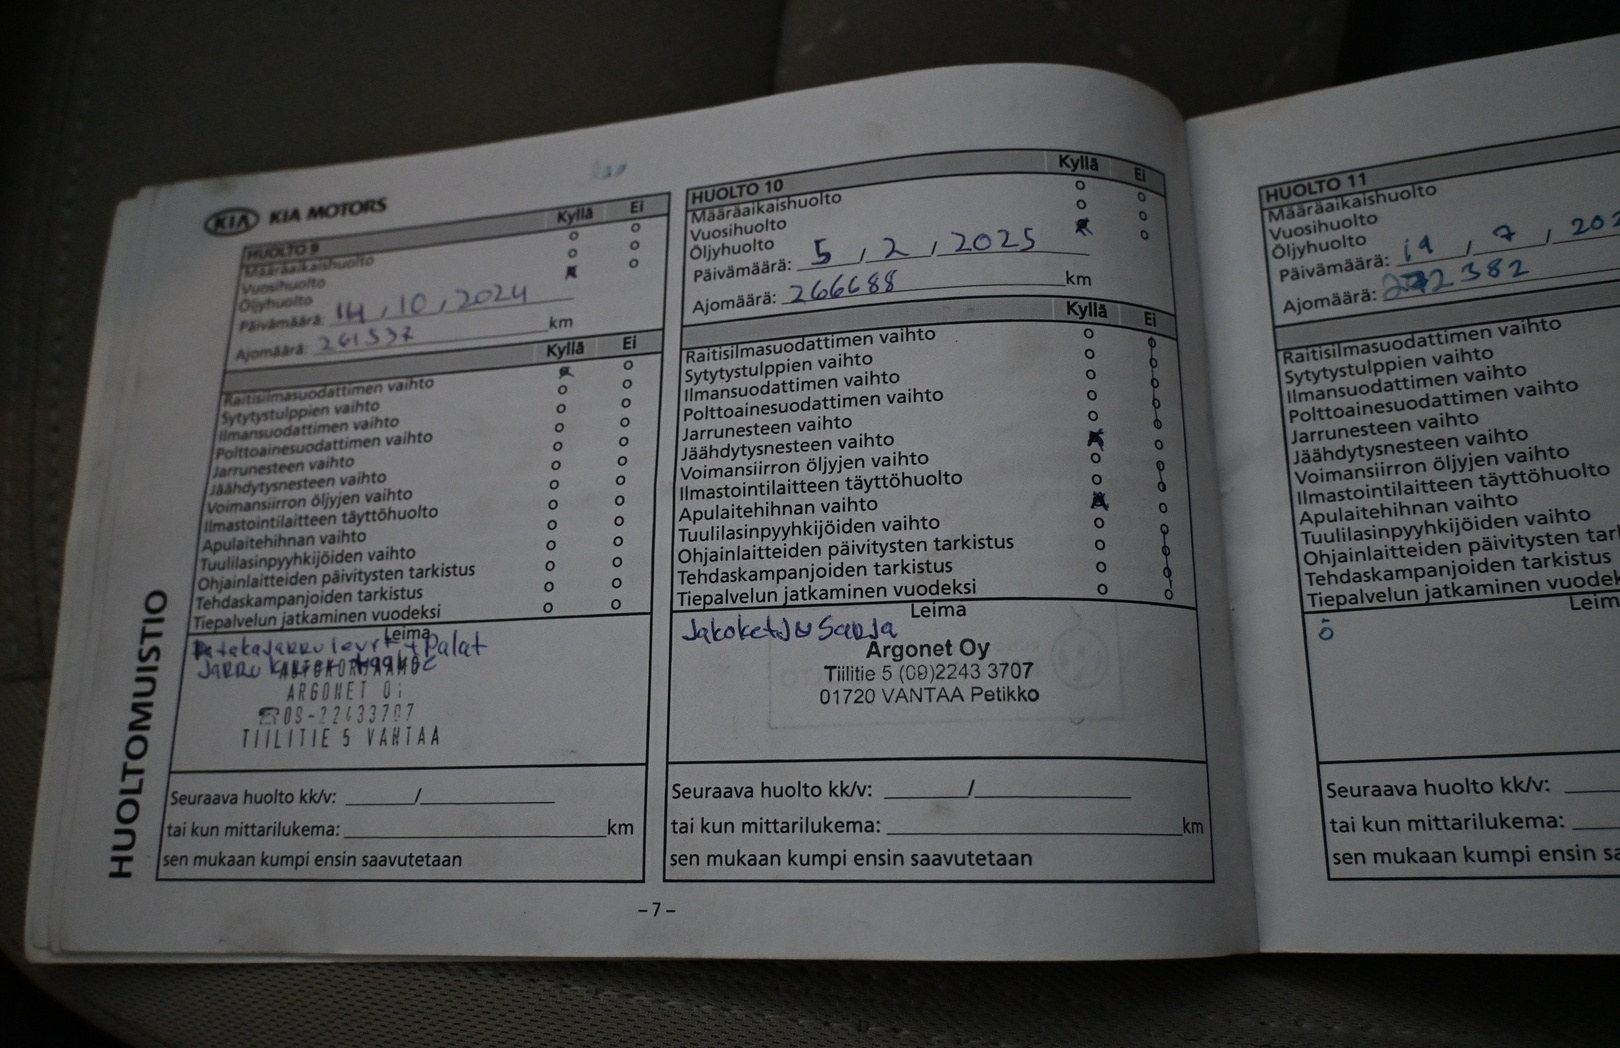 KIA KIA MOTORS
HUOLTOMUISTIO
HUOLTO 9 Kyllä Ei
Määräaikaishuolto
Vuosihuolto
Öljyhuolto
Päivämäärä: 14 , 10 , 2024
Ajomäärä: 261537 km
Kyllä Ei
Raitisilmasuodattimen vaihto
Sytytystulppien vaihto
Ilmansuodattimen vaihto
Polttoainesuodattimen vaihto
Jarrunesteen vaihto
Jäähdytysnesteen vaihto
Voimansiirron öljyjen vaihto
Ilmastointilaitteen täyttöhuolto
Apulaitehihnan vaihto
Tuulilasinpyyhkijöiden vaihto
Ohjainlaitteiden päivitysten tarkistus
Tehdaskampanjoiden tarkistus
Tiepalvelun jatkaminen vuodeksi
Leima
+ Palat
Jarru
AUTOKORJAAMO
ARGONET OY
☎09-22433707
TIILITIE 5 VANTAA
Seuraava huolto kk/v: ______/____________
tai kun mittarilukema: ________________________ km
sen mukaan kumpi ensin saavutetaan
HUOLTO 10 Kyllä Ei
Määräaikaishuolto
Vuosihuolto
Öljyhuolto
Päivämäärä: 5 , 2 , 2025
Ajomäärä: 266688 km
Kyllä Ei
Raitisilmasuodattimen vaihto
Sytytystulppien vaihto
Ilmansuodattimen vaihto
Polttoainesuodattimen vaihto
Jarrunesteen vaihto
Jäähdytysnesteen vaihto
Voimansiirron öljyjen vaihto
Ilmastointilaitteen täyttöhuolto
Apulaitehihnan vaihto
Tuulilasinpyyhkijöiden vaihto
Ohjainlaitteiden päivitysten tarkistus
Tehdaskampanjoiden tarkistus
Tiepalvelun jatkaminen vuodeksi
Leima
Jakoketju Sarja
Argonet Oy
Tiilitie 5 (09)2243 3707
01720 VANTAA Petikko
Seuraava huolto kk/v: ______/____________
tai kun mittarilukema: ________________________ km
sen mukaan kumpi ensin saavutetaan
– 7 –
HUOLTO 11
Määräaikaishuolto
Vuosihuolto
Öljyhuolto
Päivämäärä: 19 , 7 , 202
Ajomäärä: 272382
Raitisilmasuodattimen vaihto
Sytytystulppien vaihto
Ilmansuodattimen vaihto
Polttoainesuodattimen vaihto
Jarrunesteen vaihto
Jäähdytysnesteen vaihto
Voimansiirron öljyjen vaihto
Ilmastointilaitteen täyttöhuolto
Apulaitehihnan vaihto
Tuulilasinpyyhkijöiden vaihto
Ohjainlaitteiden päivitysten tar
Tehdaskampanjoiden tarkistus
Tiepalvelun jatkaminen vuodek
Leim
Ö
Seuraava huolto kk/v:
tai kun mittarilukema:
sen mukaan kumpi ensin sa